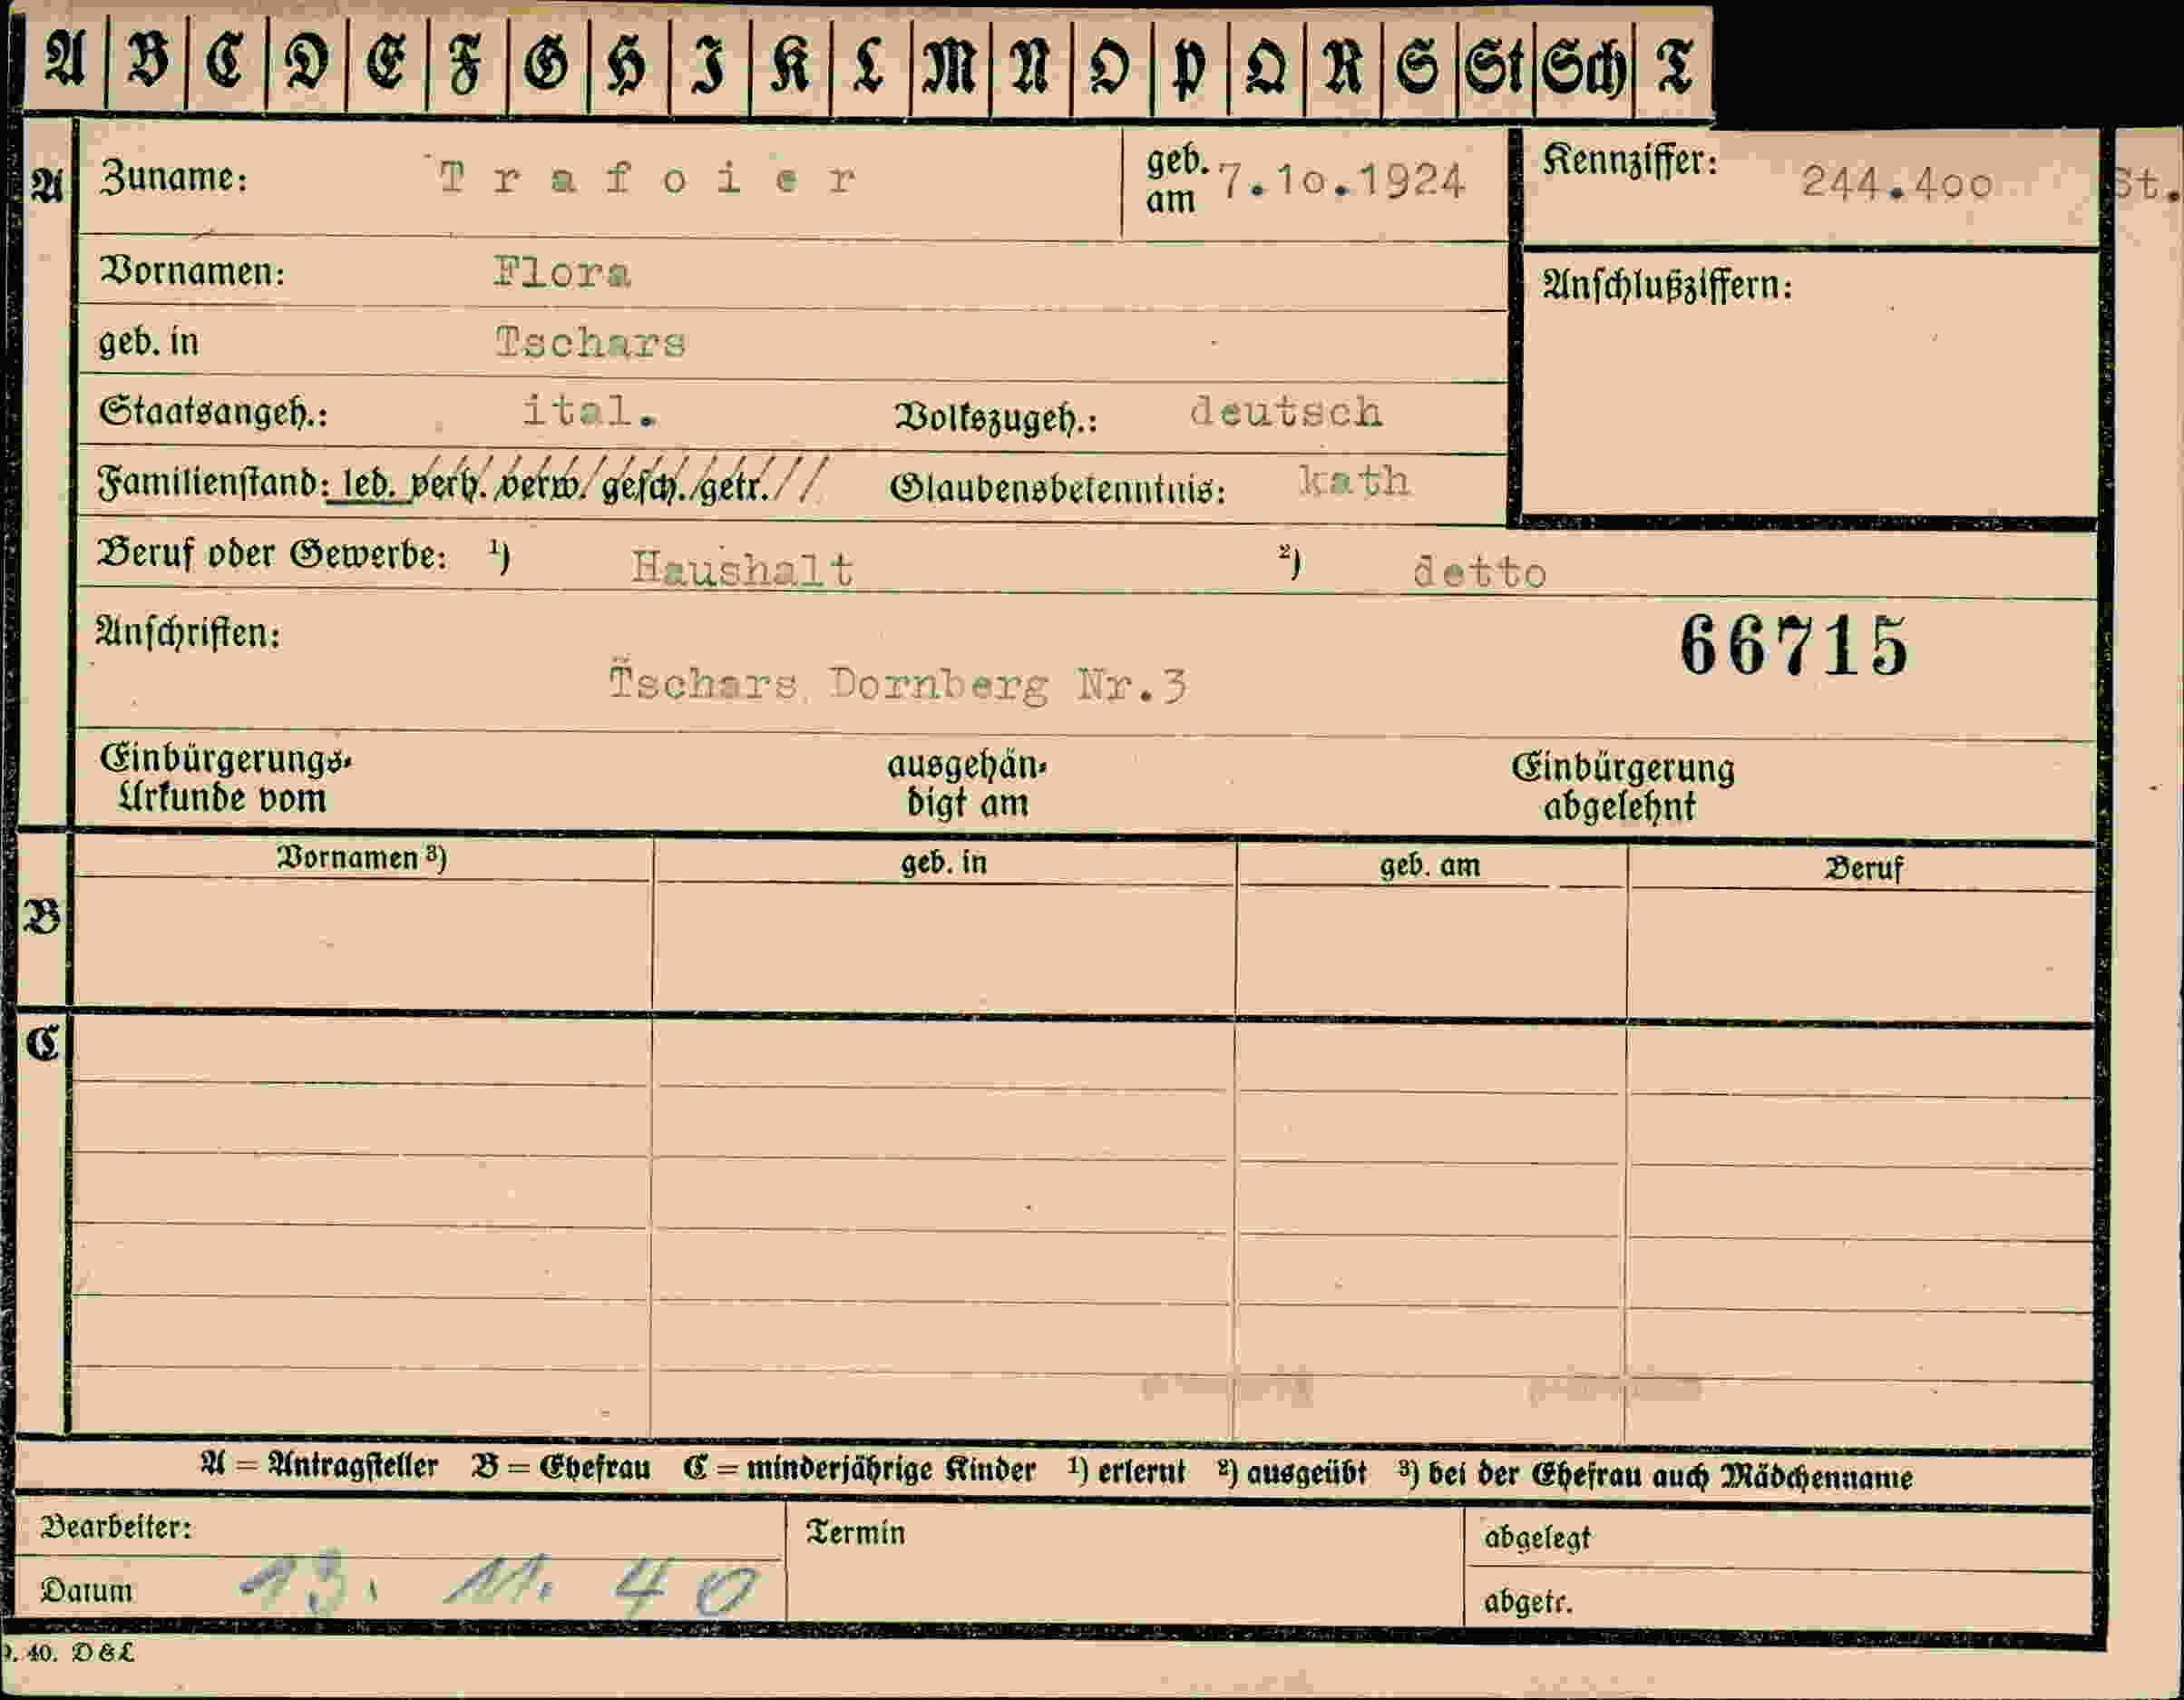 A B C D E F G H I K L M N O P Q R S St Sch T
A Zuname: Trafoier geb. am 7.10.1924 Kennziffer: 244.400 St.
Vornamen: Flora Anschlußziffern:
geb. in Tschars
Staatsangeh.: ital. Volkszugeh.: deutsch
Familienstand: led. verh. verw. gesch. getr. Glaubensbekenntnis: kath
Beruf oder Gewerbe: ¹) Haushalt ²) detto
Anschriften: 66715
Tschars, Dornberg Nr.3
Einbürgerungs- ausgehän- Einbürgerung
Urkunde vom digt am abgelehnt
Vornamen ³) geb. in geb. am Beruf
B
C
A = Antragsteller B = Ehefrau C = minderjährige Kinder ¹) erlernt ²) ausgeübt ³) bei der Ehefrau auch Mädchenname
Bearbeiter: Termin abgelegt
Datum 13. 11. 40 abgetr.
40. D & L